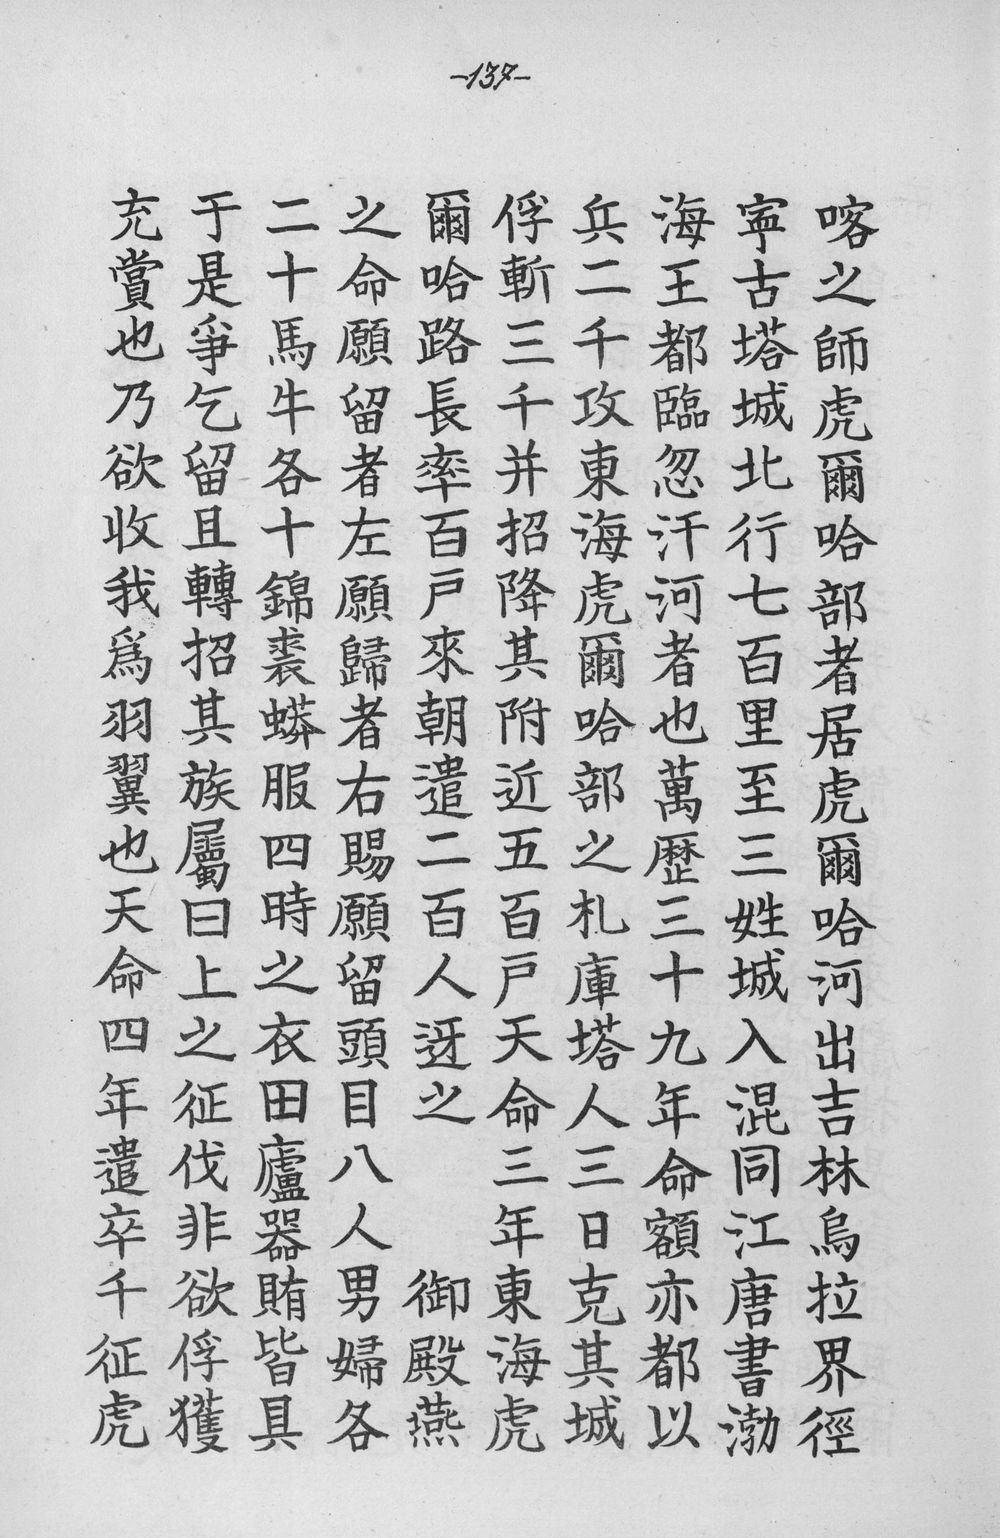 -137-
喀之師虎爾哈部者居虎爾哈河出吉林烏拉界徑
寧古塔城北行七百里至三姓城入混同江唐書渤
海王都臨忽汗河者也萬歷三十九年命額亦都以
兵二千攻東海虎爾哈部之札庫塔人三日克其城
俘斬三千并招降其附近五百戸天命三年東海虎
爾哈路長率百戸來朝遣二百人迓之　御殿燕
之命願留者左願歸者右賜願留頭目八人男婦各
二十馬牛各十錦裘蟒服四時之衣田廬器賄皆具
于是爭乞留且轉招其族屬曰上之征伐非欲俘獲
充賞也乃欲收我爲羽翼也天命四年遣卒千征虎